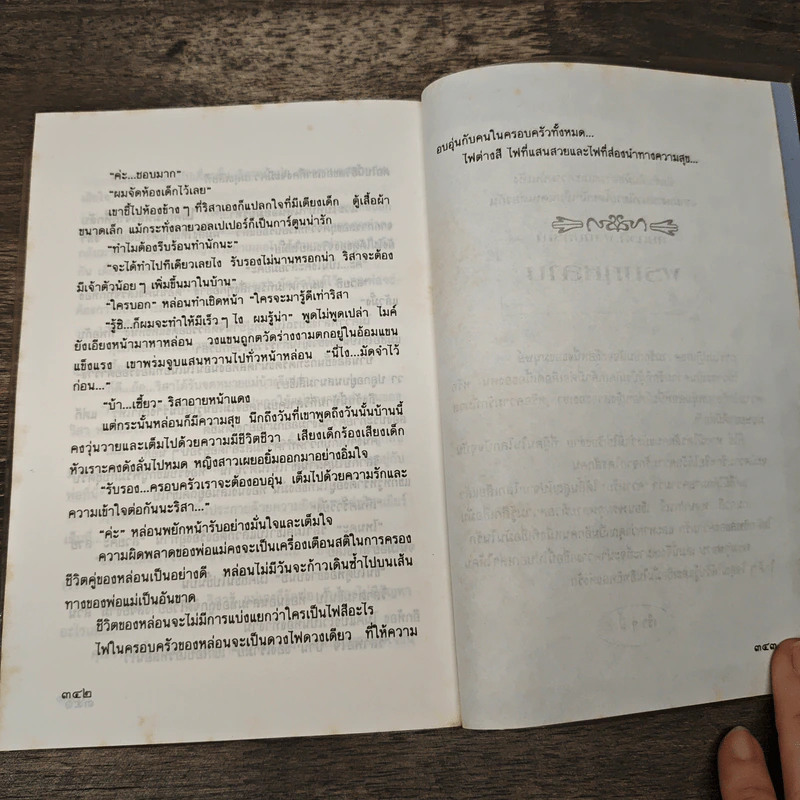 "ค่ะ...ชอบมาก"
"ผมจัดห้องเด็กไว้เลย"
เขาชี้ไปห้องข้าง ๆ ที่ริสาเองก็แปลกใจที่มีเตียงเด็ก ตู้เสื้อผ้า
ขนาดเล็ก แม้กระทั่งลายวอลเปเปอร์ก็เป็นการ์ตูนน่ารัก
"ทำไมต้องรีบร้อนทำนักนะ"
"จะได้ทำไปทีเดียวเลยไง รับรองไม่นานหรอกน่า ริสาจะต้อง
มีเจ้าตัวน้อย ๆ เพิ่มขึ้นมาในบ้าน"
"ใครบอก" หล่อนทำเชิดหน้า "ใครจะมารู้ดีเท่าริสา
"รู้ซิ...ก็ผมจะทำให้มีเร็ว ๆ ไง ผมรู้น่า" พูดไม่พูดเปล่า ไมค์
ยังเอียงหน้ามาหาหล่อน วงแขนถูกตวัดร่างงามตกอยู่ในอ้อมแขน
แข็งแรง เขาพรมจูบแสนหวานไปทั่วหน้าหล่อน "นี่ไง...มัดจำไว้
ก่อน..."
"บ้า...เซี้ยว" ริสาอายหน้าแดง
แต่กระนั้นหล่อนก็มีความสุข นึกถึงวันที่เขาพูดถึงวันนั้นบ้านนี้
คงวุ่นวายและเต็มไปด้วยความมีชีวิตชีวา เสียงเด็กร้องเสียงเด็ก
หัวเราะคงดังลั่นไปหมด หญิงสาวเผยอยิ้มออกมาอย่างอิ่มใจ
"รับรอง...ครอบครัวเราจะต้องอบอุ่น เต็มไปด้วยความรักและ
ความเข้าใจต่อกันนะริสา..."
"ค่ะ" หล่อนพยักหน้ารับอย่างมั่นใจและเต็มใจ
ความผิดพลาดของพ่อแม่คงจะเป็นเครื่องเตือนสติในการครอง
ชีวิตคู่ของหล่อนเป็นอย่างดี หล่อนไม่มีวันจะก้าวเดินซ้ำไปบนเส้น
ทางของพ่อแม่เป็นอันขาด
ชีวิตของหล่อนจะไม่มีการแบ่งแยกว่าใครเป็นไฟสีอะไร
ไฟในครอบครัวของหล่อนจะเป็นดวงไฟดวงเดียว ที่ให้ความ
๓๔๒
อบอุ่นกับคนในครอบครัวทั้งหมด...
ไฟต่างสี ไฟที่แสนสวยและไฟที่ส่องนำทางความสุข...
๓๔๓